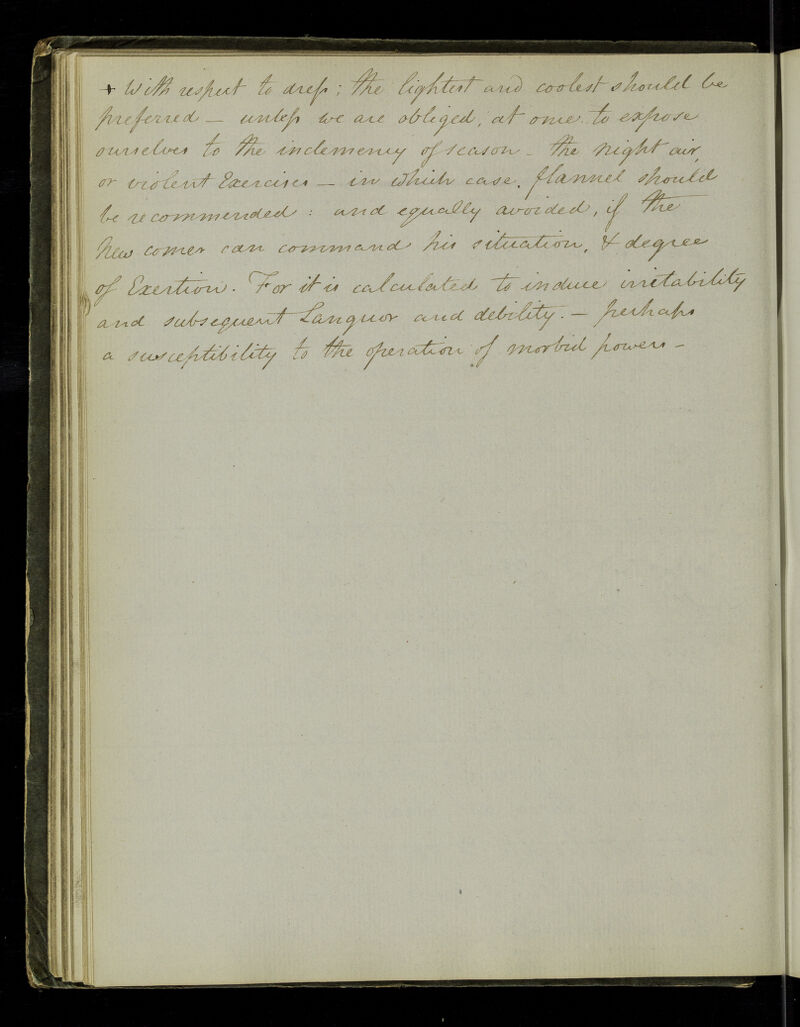 + With respect to dress; the lightest and coolest should be
preferred — unless we are obliged, at once to expose
ourselves to the inclemency of season – the night air,
or violent Exercises — in which case, flannel should
be recommended : and equally avoided, if the
New comer can command his situation, & degree
of Exertion. For it is calculated to induce irritability
and subsequent Languor and debility. – perhaps
a susceptibility to the operation of morbid powers –